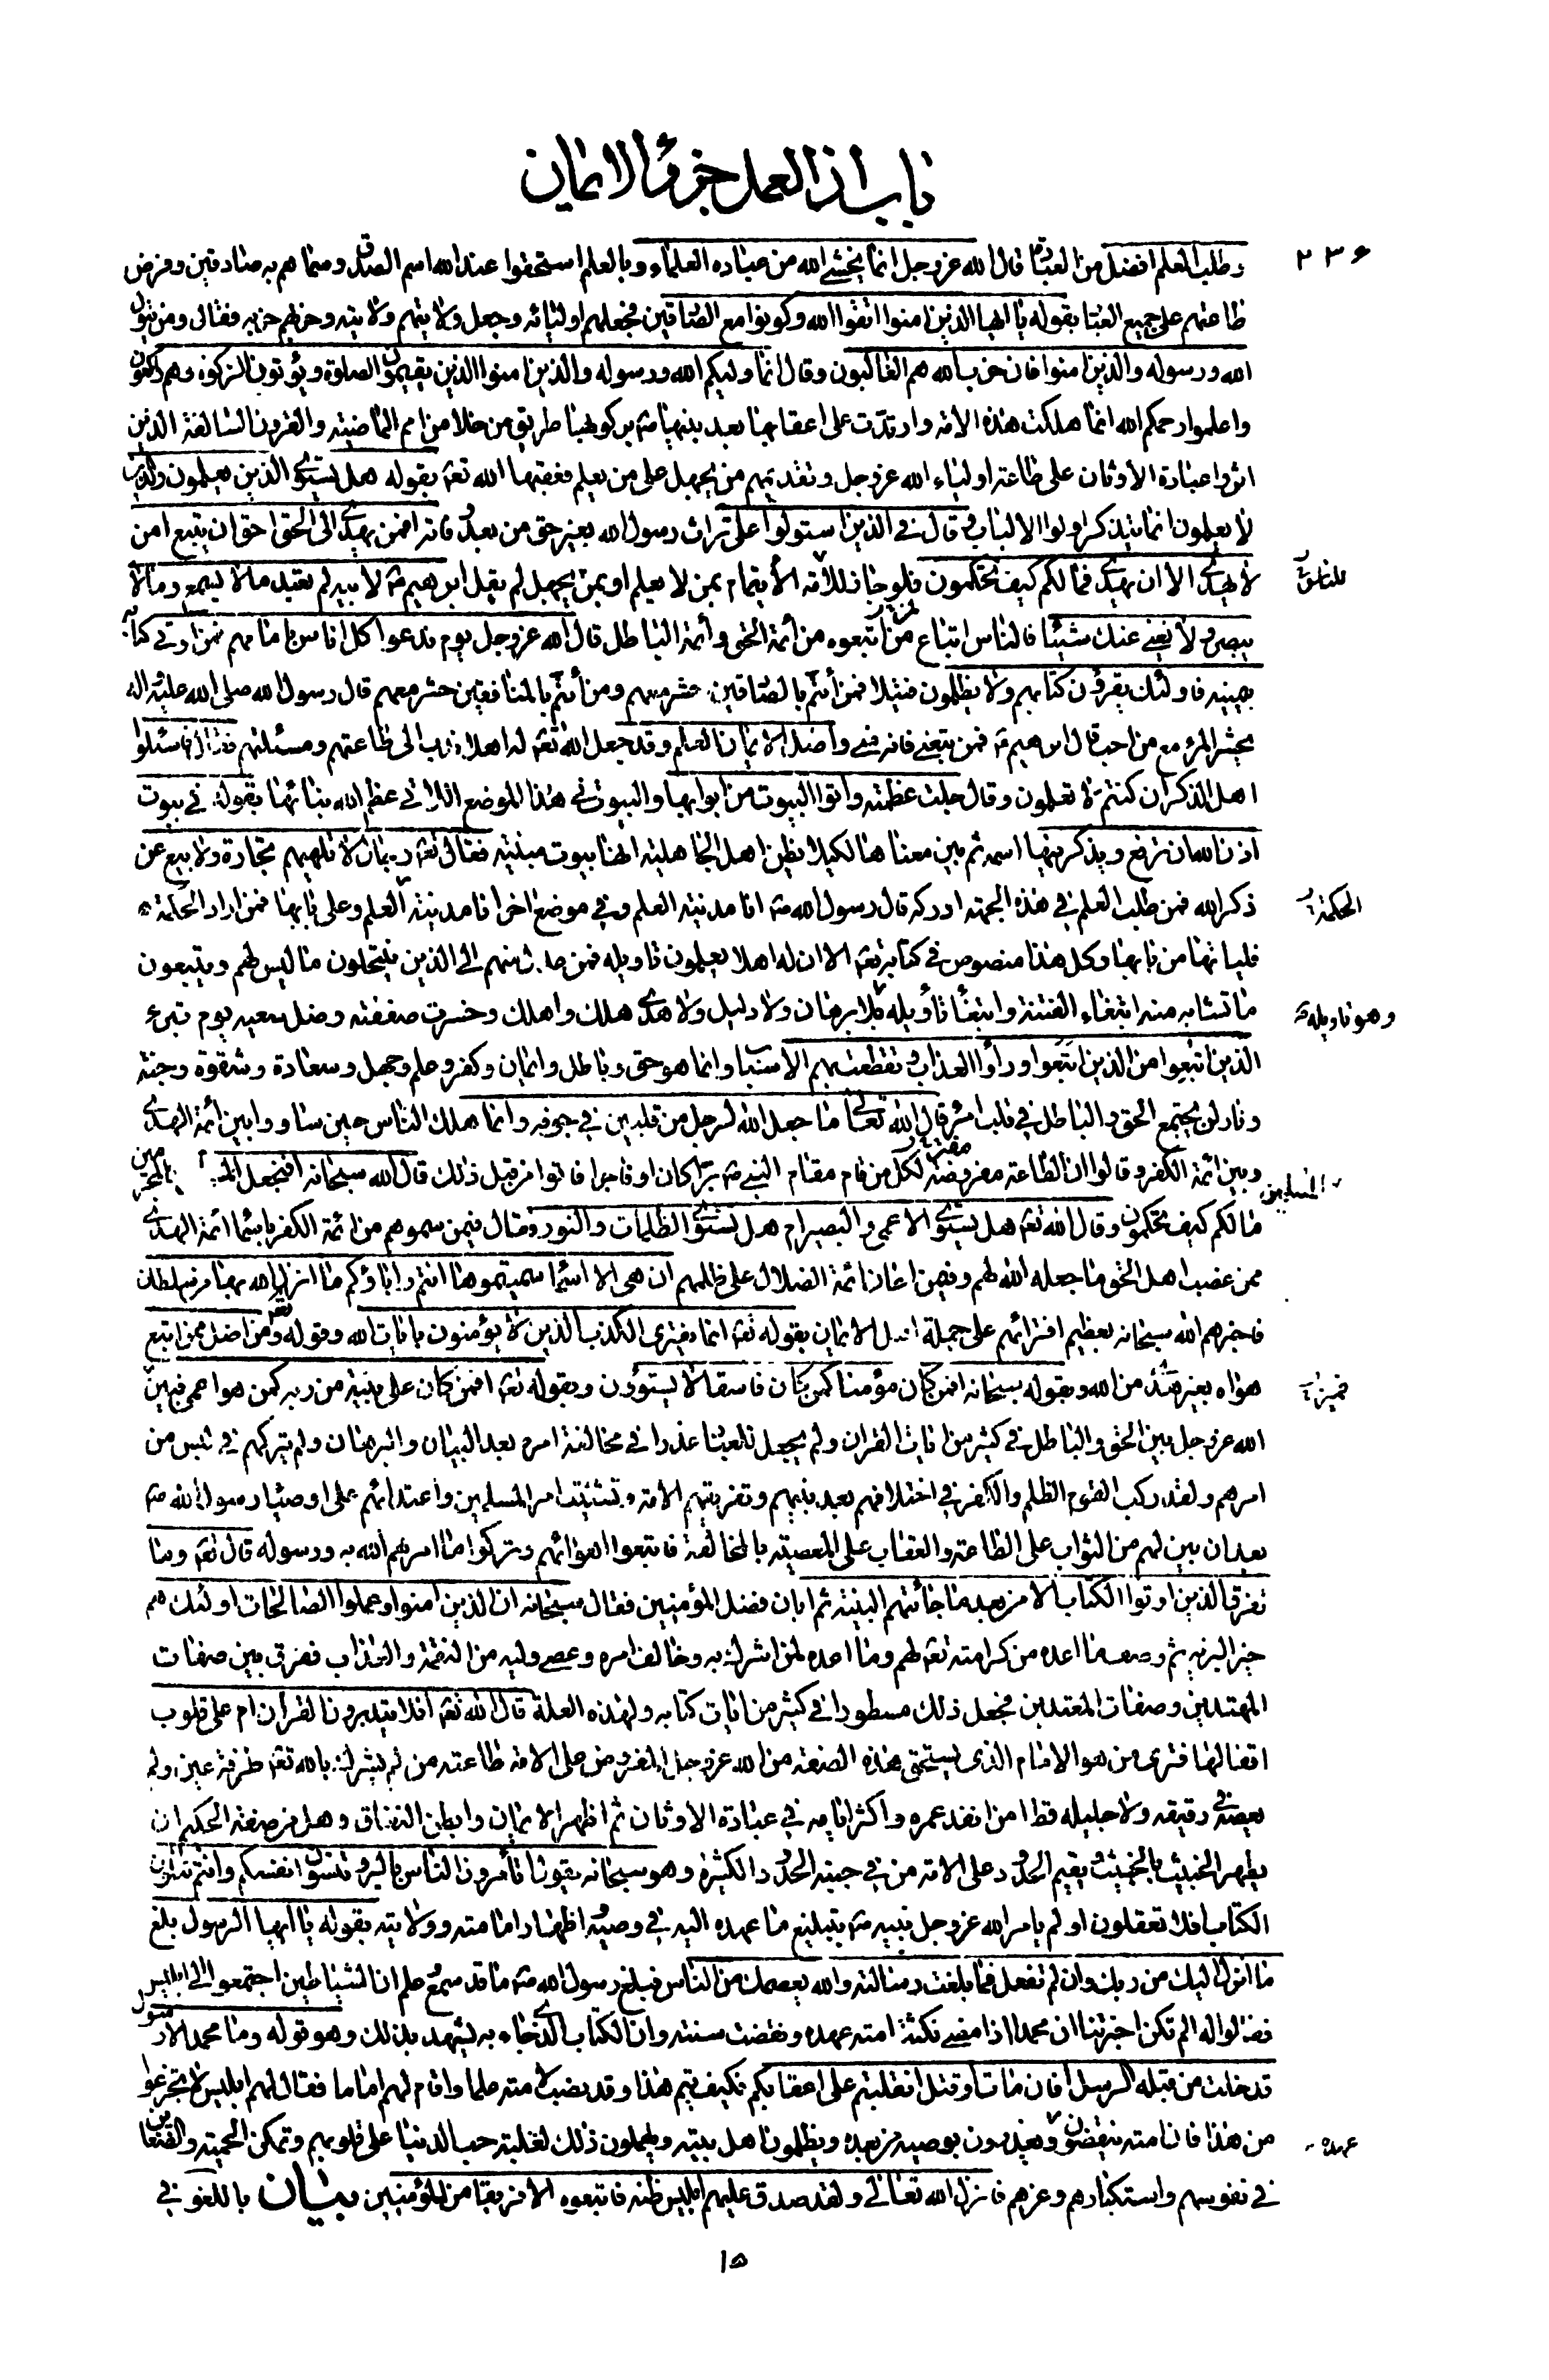 باب ان العمل جزء الايمان
٢٣۶
وطلب العلم افضل من العبادة قال الله عز وجل انما يخشى الله من عباده العلماء وبالعلم استحقوا عند الله اسم الصدق وسماهم به صادقين وفرض
طاعتهم على جميع العباد بقوله يا ايها الذين امنوا اتقوا الله وكونوا مع الصادقين فجعلهم اوليائه وجعل ولايتهم ولايته وحزبهم حزبه فقال ومن يتول
الله ورسوله والذين امنوا فان حزب الله هم الغالبون وقال انما وليكم الله ورسوله والذين امنوا الذين يقيمون الصلوة ويؤتون الزكوة وهم راكعون
واعلموا رحمكم الله انما هلكت هذه الامة وارتدت على اعقابها بعد نبيها ص بركوبها طريق من خلا من امم الماضية والقرون السالفة الذين
اثروا عبادة الاوثان على طاعة اولياء الله عز وجل وتقديمهم من يجهل على من يعلم فعقبها الله تعه بقوله هل يستوى الذين يعلمون والذين
لا يعلمون انما يتذكر اولوا الالباب وقال في الذين استولوا على تراث رسول الله بغير حق من بعد وفاته افمن يهدى الى الحق احق ان يتبع امن
لا يهدى الا ان يهدى فمالكم كيف تحكمون فلو جاز للامة الايتمام بمن لا يعلم او بمن يجهل لم يقل ابرهيم ع لابيه لم تعبد مالا يسمع ومالا
يبصر ولا يغنى عنك شيئا فالناس اتباع من اتبعوه من أئمة الحق وأئمة الباطل قال الله عز وجل يوم ندعوا كل اناس بامامهم فمن اوتى كتابه
بيمينه فاولئك يقرؤن كتابهم ولا يظلمون فتيلا فمن أئتم بالصادقين حشر معهم ومن أئتم بالمنافقين حشر معهم قال رسول الله صلى الله عليه واله
يحشر المرء مع من احب قال ابرهيم ع فمن تبعنى فانه منى واصل الايمان العلم وقد جعل الله تعه له اهلا ندب الى طاعتهم ومسئلتهم فقال فاسئلوا
اهل الذكر ان كنتم لا تعلمون وقال جلت عظمته واتوا البيوت من ابوابها والبيوت في هذا الموضع اللاتى عظم الله بنائها بقوله في بيوت
اذن الله ان ترفع ويذكر فيها اسمه ثم بين معناها لكيلا يظن اهل الجاهلية انها بيوت مبنية فقال تعه رجال لا تلهيهم تجارة ولا بيع عن
ذكر الله فمن طلب العلم في هذه الجهة ادركه قال رسول الله ص انا مدينة العلم وفي موضع اخر انا مدينة العلم وعلى بابها فمن اراد الحكمة
الحكمة
فلياتها من بابها وكل هذا منصوص في كتابه تعه الا ان له اهلا يعلمون تاويله فمن عدل منهم الى الذين ينتحلون ما ليس لهم ويتبعون
ما تشابه منه ابتغاء الفتنة وابتغاء تأويله بلا برهان ولا دليل ولا هدى هلك واهلك وخسرت صفقته وضل سعيه يوم تبرء
وهو تاويله
الذين اتبعوا من الذين اتبعوا وراوا العذاب وتقطعت بهم الاسباب وانما هو حق وباطل وايمان وكفر وعلم وجهل وسعادة وشقوة وجنة
ونار لن يجتمع الحق والباطل في قلب امرء قال الله تعالى ما جعل الله لرجل من قلبين في جوفه وانما هلك الناس حين ساووا بين أئمة الهدى
وبين ائمة الكفر وقالوا ان الطاعة مفروضة لكل من قام مقام النبى ص برا كان او فاجرا فاتوا من قبل ذلك قال الله سبحانه افنجعل المسلمين كالمجرمين
مالكم كيف تحكمون وقال الله تعه هل يستوى الاعمى والبصير ام هل تستوى الظلمات والنور وقال فيمن سموهم من ائمة الكفر باسماء ائمة الهدى
ممن غصب اهل الحق ما جعله الله لهم وفيمن اعان ائمة الضلال على ظلمهم ان هى الا اسماء سميتموها انتم واباؤكم ما انزل الله بها من سلطان
فاخبرهم الله سبحانه بعظيم افترائهم على جملة اهل الايمان بقوله تعه انما يفترى الكذب الذين لا يؤمنون بايات الله وقوله تعه ومن اضل ممن اتبع
هواه بغير هدى من الله وبقوله سبحانه افمن كان مؤمنا كمن كان فاسقا لا يستوون وبقوله تعه افمن كان على بينة من ربه كمن هو اعمى فبين
الله عز وجل بين الحق والباطل في كثير من ايات القران ولم يجعل للعباد عذرا في مخالفة امره بعد البيان والبرهان ولم يتركهم في لبس من
امرهم ولقد ركب القوم الظلم والكفر في اختلافهم بعد نبيهم وتفريقهم الامة وتشتيت امر المسلمين واعتدائهم على اوصياء رسول الله ص
بعد ان بين لهم من الثواب على الطاعة والعقاب على المعصية بالمخالفة فاتبعوا اهوائهم وتركوا ما امرهم الله به ورسوله قال تعه وما
تفرق الذين اوتوا الكتاب الا من بعد ما جائتهم البينة ثم ابان فضل المؤمنين فقال سبحانه ان الذين امنوا وعملوا الصالحات اولئك هم
خير البرية ثم وصف ما اعده من كرامته تعه لهم وما اعده لمن اشرك به وخالف امره وعصى وليه من النقمة والعذاب ففرق بين صفات
المهتدين وصفات المعتدين فجعل ذلك مسطورا في كثير من ايات كتابه ولهذه العلة قال الله تعه افلا يتدبرون القرأن ام على قلوب
اقفالها فترى من هو الامام الذى يستحق هذه الصفة من الله عز وجل المفروض على الامة طاعته من لم يشرك بالله تعه طرفة عين ولم
يعصه في دقيقة ولا جليلة قط امن انفد عمره واكثر ايامه في عبادة الاوثان ثم اظهر الايمان وابطن النفاق وهل من صفة الحكيم ان
يطهر الخبيث بالخبيث ويقيم الحدود على الامة من في جنبه الحدود الكثيرة وهو سبحانه يقول اتأمرون الناس بالبر وتنسون انفسكم وانتم تتلون
الكتاب افلا تعقلون اولم يامر الله عز وجل نبيه ص بتبليغ ما عهده اليه في وصيه واظهار امامته وولايته بقوله يا ايها الرسول بلغ
ما انزل اليك من ربك وان لم تفعل فما بلغت رسالته والله يعصمك من الناس فبلغ رسول الله ص ما قد سمع وعلم ان الشياطين اجتمعوا الى ابليس
فقالوا له الم تكن اخبرتنا ان محمدا اذا مضى نكثت امته عهده ونقضت سنته وان الكتاب الذى جاء به يشهد بذلك وهو قوله وما محمد الا رسول
قد خلت من قبله الرسل افان مات او قتل انقلبتم على اعقابكم فكيف يتم هذا وقد نصب لامته علما واقام لهم اماما فقال لهم ابليس لا تجزعوا
من هذا فان امته ينقضون ويغدرون بوصيه من بعده ويظلمون اهل بيته ويهملون ذلك لغلبة حب الدنيا على قلوبهم وتمكن الحمية والضغاين
عهده
في نفوسهم واستكبارهم وعزهم فانزل الله تعالى ولقد صدق عليهم ابليس ظنه فاتبعوه الا فريقا من المؤمنين بيان باللغو في
١۵